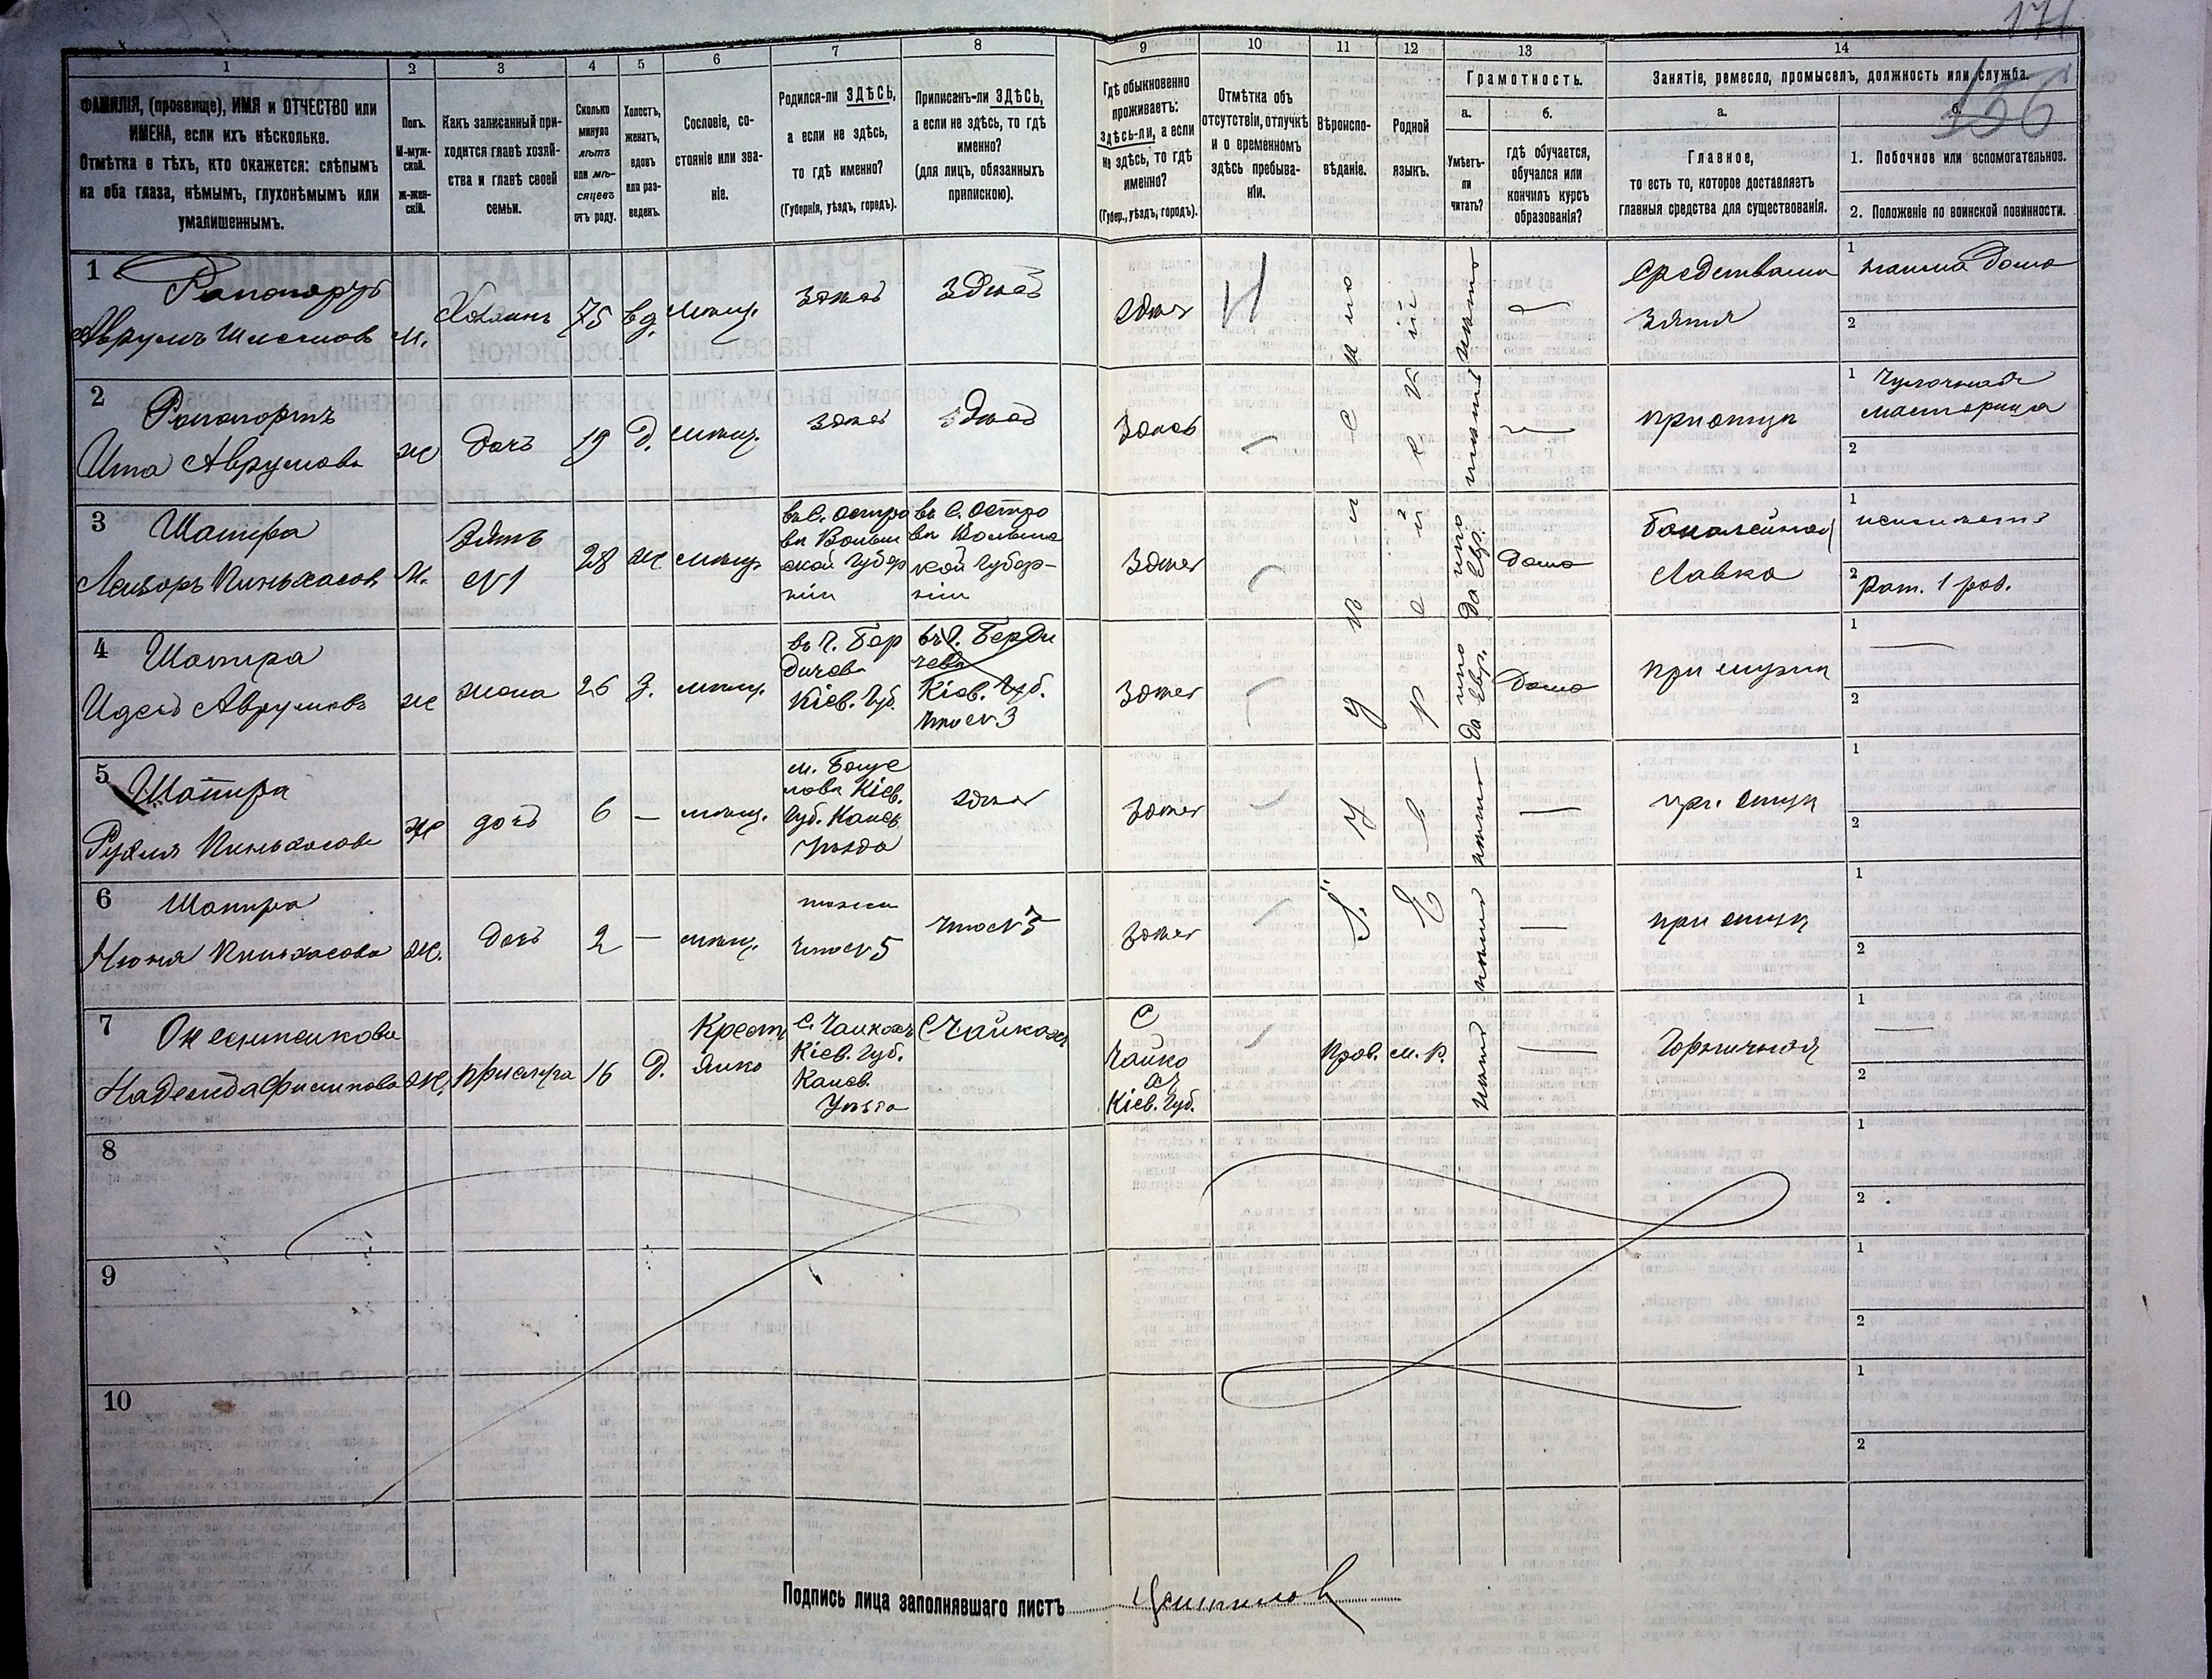 171
156
1
2
3
4
5
6
7
8
9
10
11
12
13
14
ФАМИЛІЯ, (прозвище), ИМЯ и ОТЧЕСТВО или
ИМЕНА, если ихъ нѣсколько.
Отмѣтка о тѣхъ, кто окажется: слѣпымъ
на оба глаза, нѣмымъ, глухонѣмымъ или
умалишеннымъ.
Полъ.
М-муж-
ской.
ж-жен-
скій.
Какъ записанный при-
ходится главѣ хозяй-
ства и главѣ своей
семьи.
Сколько
минуло
лѣтъ
или мѣ-
сяцевъ
отъ роду.
Холостъ,
женатъ,
вдовъ
или раз-
веденъ.
Сословіе, со-
стояніе или зва-
ніе.
Родился-ли ЗДѢСЬ,
а если не здѣсь,
то гдѣ именно?
(Губернія, уѣздъ, городъ).
Приписанъ-ли ЗДѢСЬ,
а если не здѣсь, то гдѣ
именно?
(для лицъ, обязанныхъ
припискою).
Гдѣ обыкновенно
проживаетъ:
здѣсь-ли, а если
не здѣсь, то гдѣ
именно?
(Губер., уѣздъ, городъ).
Отмѣтка объ
отсутствіи, отлучкѣ
и о временномъ
здѣсь пребыва-
ніи.
Вѣроиспо-
вѣданіе.
Родной
языкъ.
Грамотность.
а.
б.
Умѣетъ-
ли
читать?
гдѣ обучается,
обучался или
кончилъ курсъ
образованія?
Занятіе, ремесло, промыселъ, должность или служба.
а.
б.
Главное,
то есть то, которое доставляетъ
главныя средства для существованія.
1. Побочное или вспомогательное.
2. Положеніе по воинской повинности.
1
Рапопортъ
Аврумъ
М.
Хозяинъ
75
вд.
мѣщ.
здѣсь
здѣсь
здѣсь
Іудейское
Еврейскій
нѣтъ
Средствами
зятя
1
2
2
Рапопортъ
Ита Аврумова
ж
дочь
19
д.
мѣщ.
здѣсь
здѣсь
здѣсь
нѣтъ
при отцѣ
1 Чулочная
мастерица
2
3
Шапира
Лейзоръ Пинхасовъ
М.
Зять
№1
28
ж
мѣщ.
въ г. Остро
вѣ Волын
ской Губер
ніи
въ г. Остро
вѣ Волынс
кой Губер-
ніи
здѣсь
да по
евр.
дома
Бакалейная
Лавка
1
2 Рат. 1 раз.
4
Шапира
Идесъ Аврумовъ
ж
жена
26
з.
мѣщ.
въ г. Бер
дичевѣ
Кіев. Губ.
въ г. Берди
чевѣ
Кіев. Губ.
что №3
здѣсь
да по
евр.
дома
при мужѣ
1
2
5
Шапира
Рухля Пинхасова
ж
дочь
6
—
мѣщ.
м. Богус
лавѣ Кіев.
Губ. Канев.
Уѣзда
здѣсь
здѣсь
нѣтъ
—
при отцѣ
1
2
6
Шапира
Нюня Пинхасова
ж.
дочь
2
—
мѣщ.
тоже
что №5
что №5
здѣсь
нѣтъ
—
при отцѣ
1
2
7
Надежда Филипова
ж.
прислуга
16
д.
Крест
янка
с. Чайкахъ
Кіев. Губ.
Канев.
Уѣзда
с. Чайкахъ
с
Чайко
ах
Кіев. Губ.
прав.
м. р.
нѣтъ
—
Горничная
1
2
8
1
2
9
1
2
10
1
2
Подпись лица заполнявшаго листъ